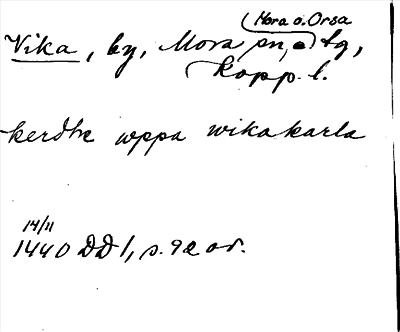 Mora o. Orsa
Vika, by, Mora sn, o tg,
Kopp. l.
kerdhe uppa wikakarla
14/11
1440 DD 1, s. 92 or.